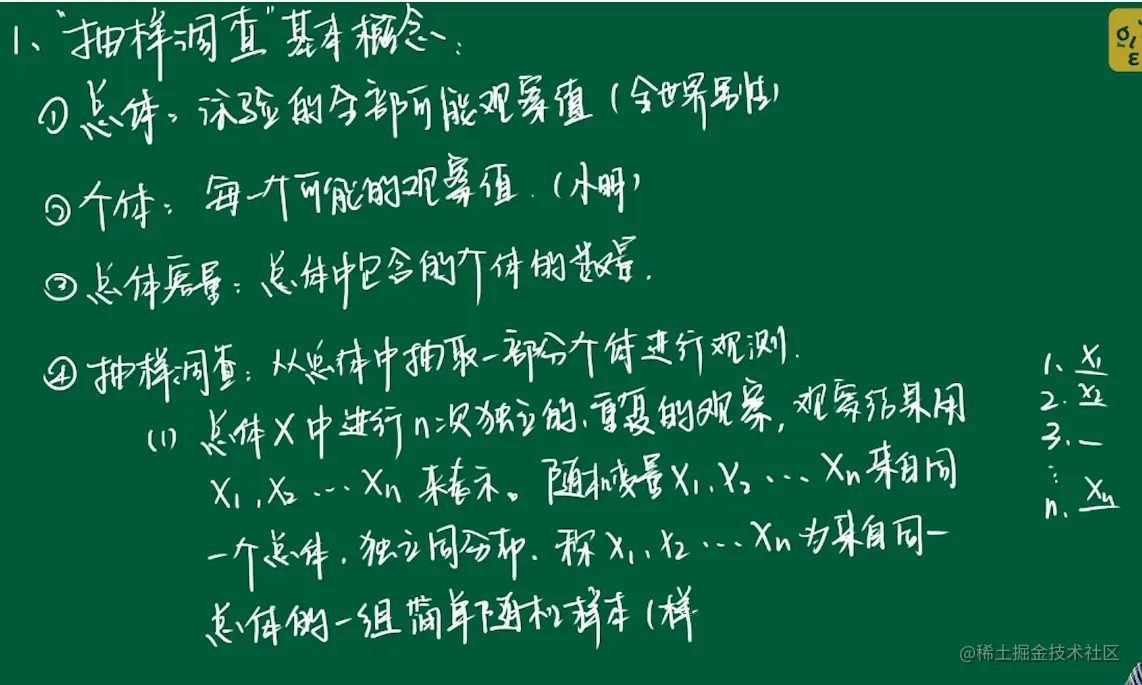 1、“抽样调查”基本概念：
① 总体：试验的全部可能观察值（全世界男性）
② 个体：每一个可能的观察值．（小明）
③ 总体容量：总体中包含的个体的数量．
④ 抽样调查：从总体中抽取一部分个体进行观测．
(1) 总体X中进行n次独立的、重复的观察，观察结果用
X₁，X₂ … Xₙ 来表示。随机变量X₁，X₂ … Xₙ 来自同
一个总体，独立同分布．称X₁，X₂ … Xₙ为来自同一
总体的一组简单随机样本（样
1. X₁
2. X₂
3. —
⋮
n. Xₙ
@稀土掘金技术社区